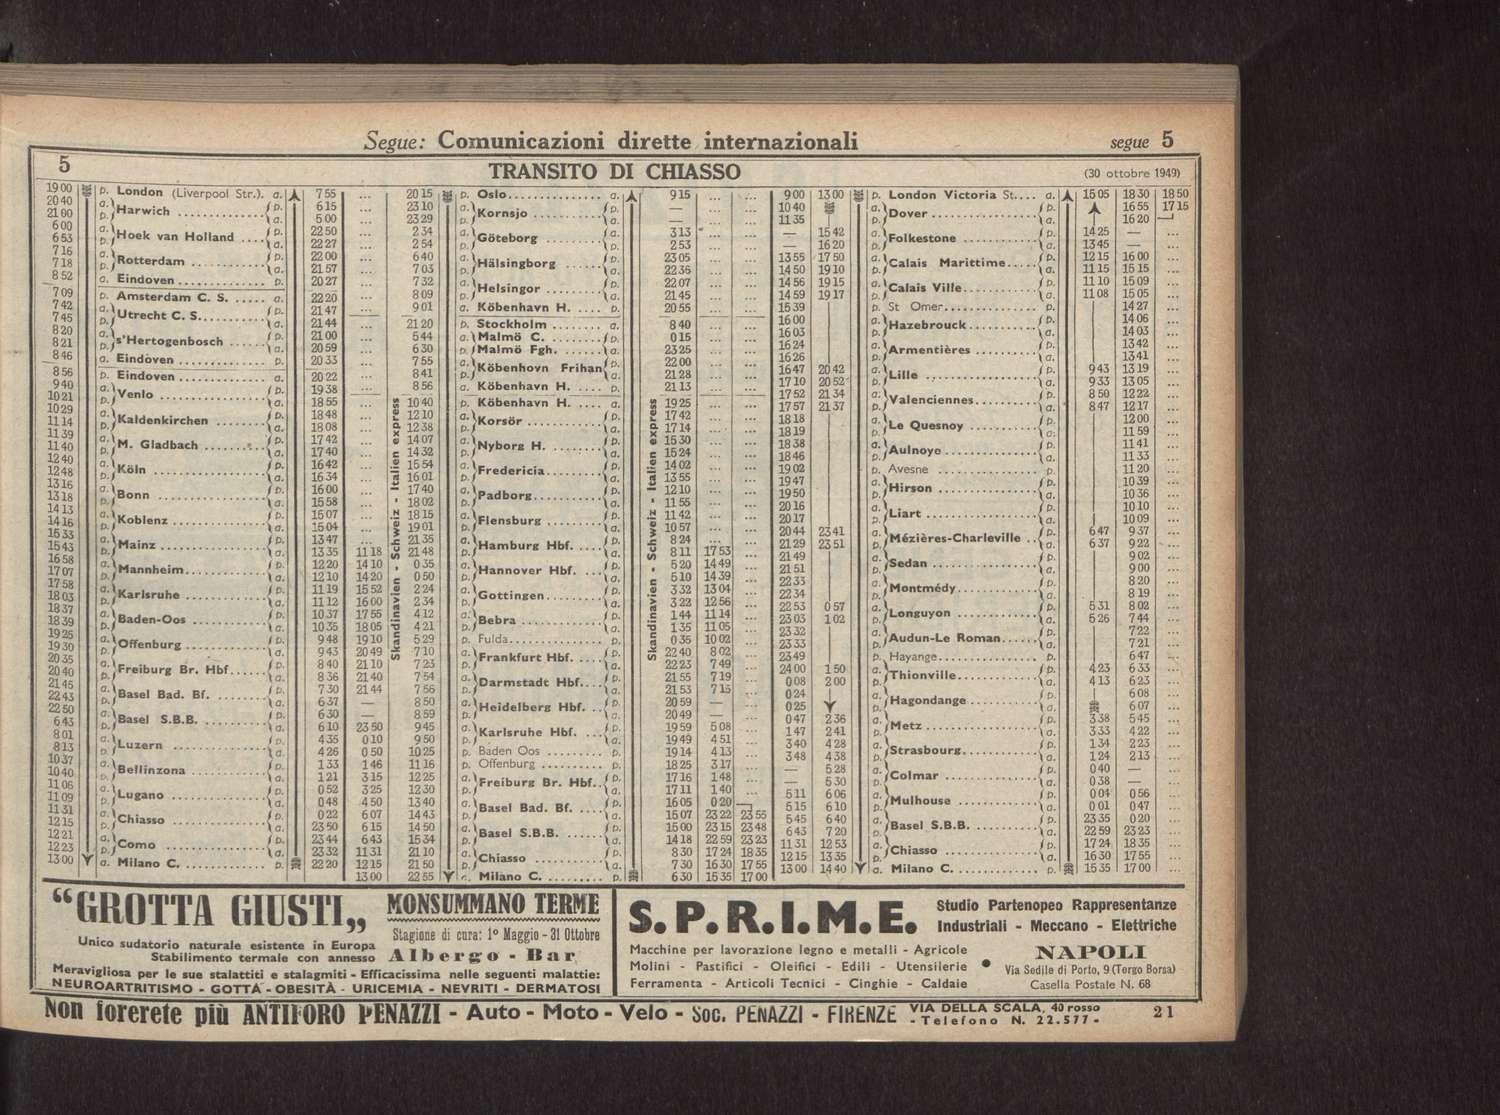 Segue: Comunicazioni dirette internazionali segue 5
5 TRANSITO DI CHIASSO (30 ottobre 1949)
19 00 p. London (Liverpool Str.). a. 7 55
20 40 a. Harwich p. 6 15
21 00 p. a. 5 00
6 00 a. Hoek van Holland p. 22 50
6 53 p. a. 22 27
7 16 a. Rotterdam p. 22 00
7 18 p. a. 21 57
8 52 a. Eindoven p. 20 27
7 09 p. Amsterdam C. S. a. 22 20
7 42 a. Utrecht C. S. p. 21 47
7 45 p. a. 21 44
8 20 a. s'Hertogenbosch p. 21 00
8 21 p. a. 20 59
8 46 a. Eindoven p. 20 33
8 56 p. Eindoven a. 20 22
9 40 a. Venlo p. 19 38
10 21 p. a. 18 55
10 29 a. Kaldenkirchen p. 18 48
11 14 p. a. 18 08
11 39 a. M. Gladbach p. 17 42
11 40 p. a. 17 40
12 40 a. Köln p. 16 42
12 48 p. a. 16 34
13 16 a. Bonn p. 16 00
13 18 p. a. 15 58
14 13 a. Koblenz p. 15 07
14 16 p. a. 15 04
15 33 a. Mainz p. 13 47
15 43 p. a. 13 35
16 58 a. Mannheim p. 12 20
17 07 p. a. 12 10
17 58 a. Karlsruhe p. 11 19
18 03 p. a. 11 12
18 37 a. Baden-Oos p. 10 37
18 39 p. a. 10 35
19 25 a. Offenburg p. 9 48
19 30 p. a. 9 43
20 35 a. Freiburg Br. Hbf p. 8 40
20 40 p. a. 8 36
21 45 a. Basel Bad. Bf. p. 7 30
22 43 p. a. 6 37
22 50 a. Basel S.B.B. p. 6 30
6 43 p. a. 6 10
8 01 a. Luzern p. 4 35
8 13 p. a. 4 26
10 37 a. Bellinzona p. 1 33
10 40 p. a. 1 21
11 06 a. Lugano p. 0 52
11 09 p. a. 0 48
11 31 a. Chiasso p. 0 22
12 15 p. a. 23 50
12 21 a. Como p. 23 44
12 23 p. a. 23 32
13 00 a. Milano C. p. 22 20
Skandinavien - Schweiz - Italien express
Skandinavien - Schweiz - Italien express
... 20 15 p. Oslo a. 9 15 ... ...
... 23 10 a. Kornsjo p. — ... ...
... 23 29 p. a. — ... ...
... 2 34 a. Göteborg p. 3 13 ... ...
... 2 54 p. a. 2 53 ... ...
... 6 40 a. Hälsingborg p. 23 05 ... ...
... 7 03 p. a. 22 36 ... ...
... 7 32 a. Helsingor p. 22 07 ... ...
... 8 09 p. a. 21 45 ... ...
... 9 01 a. Köbenhavn H. p. 20 55 ... ...
... 21 20 p. Stockholm a. 8 40 ... ...
... 5 44 a. Malmö C. p. 0 15 ... ...
... 6 30 p. Malmö Fgh. a. 23 25 ... ...
... 7 55 a. Köbenhovn Frihan p. 22 00 ... ...
... 8 41 p. a. 21 28 ... ...
... 8 56 a. Köbenhavn H. p. 21 13 ... ...
... 10 40 p. Köbenhavn H. a. 19 25 ... ...
... 12 10 a. Korsör p. 17 42 ... ...
... 12 38 p. a. 17 14 ... ...
... 14 07 a. Nyborg H. p. 15 30 ... ...
... 14 32 p. a. 15 24 ... ...
... 15 54 a. Fredericia p. 14 02 ... ...
... 16 01 p. a. 13 55 ... ...
... 17 40 a. Padborg p. 12 10 ... ...
... 18 02 p. a. 11 55 ... ...
... 18 15 a. Flensburg p. 11 42 ... ...
... 19 01 p. a. 10 57 ... ...
... 21 35 a. Hamburg Hbf. p. 8 24 ... ...
11 18 21 48 p. a. 8 11 17 53 ...
14 10 0 35 a. Hannover Hbf. p. 5 20 14 49 ...
14 20 0 50 p. a. 5 10 14 39 ...
15 52 2 24 a. Gottingen p. 3 32 13 04 ...
16 00 2 34 p. a. 3 22 12 56 ...
17 55 4 12 a. Bebra p. 1 44 11 14 ...
18 06 4 21 p. a. 1 35 11 05 ...
19 10 5 29 p. Fulda p. 0 35 10 02 ...
20 49 7 10 a. Frankfurt Hbf. p. 22 40 8 02 ...
21 10 7 23 p. a. 22 23 7 49 ...
21 40 7 54 a. Darmstadt Hbf. p. 21 55 7 19 ...
21 44 7 56 p. a. 21 53 7 15 ...
— 8 50 a. Heidelberg Hbf. p. 20 59 — ...
— 8 59 p. a. 20 49 — ...
23 50 9 45 a. Karlsruhe Hbf. p. 19 59 5 08 ...
0 10 9 50 p. a. 19 49 4 51 ...
0 50 10 25 p. Baden Oos p. 19 14 4 13 ...
1 46 11 16 p. Offenburg p. 18 25 3 17 ...
3 15 12 25 a. Freiburg Br. Hbf. p. 17 16 1 48 ...
3 25 12 30 p. a. 17 11 1 40 ...
4 50 13 40 a. Basel Bad. Bf. p. 16 05 0 20
6 07 14 43 p. a. 15 07 23 22 23 55
6 15 14 50 a. Basel S.B.B. p. 15 00 23 15 23 48
6 43 15 34 p. a. 14 18 22 59 23 23
11 31 21 10 a. Chiasso p. 8 30 17 24 18 35
12 15 21 50 p. a. 7 30 16 30 17 55
13 00 22 55 a. Milano C. p. 6 30 15 35 17 00
9 00 13 00 p. London Victoria St. a. 15 05 18 30 18 50
10 40 a. Dover p. 16 55 17 15
11 35 p. a. 16 20
— 15 42 a. Folkestone p. 14 25 — ...
— 16 20 p. a. 13 45 — ...
13 55 17 50 a. Calais Marittime p. 12 15 16 00 ...
14 50 19 10 p. a. 11 15 15 15 ...
14 56 19 15 a. Calais Ville p. 11 10 15 09 ...
14 59 19 17 p. a. 11 08 15 05 ...
15 39 p. St Omer p. 14 27 ...
16 00 a. Hazebrouck p. 14 06 ...
16 03 p. a. 14 03 ...
16 24 a. Armentières p. 13 42 ...
16 26 p. a. 13 41 ...
16 47 20 42 a. Lille p. 9 43 13 19 ...
17 10 20 52 p. a. 9 33 13 05 ...
17 52 21 34 a. Valenciennes p. 8 50 12 22 ...
17 57 21 37 p. a. 8 47 12 17 ...
18 18 a. Le Quesnoy p. 12 00 ...
18 19 p. a. 11 59 ...
18 38 a. Aulnoye p. 11 41 ...
18 46 p. a. 11 33 ...
19 02 p. Avesne p. 11 20 ...
19 47 a. Hirson p. 10 39 ...
19 50 p. a. 10 36 ...
20 16 a. Liart p. 10 10 ...
20 17 p. a. 10 09 ...
20 44 23 41 a. Mézières-Charleville p. 6 47 9 37 ...
21 29 23 51 p. a. 6 37 9 22 ...
21 49 a. Sedan p. 9 02 ...
21 51 p. a. 9 00 ...
22 33 a. Montmédy p. 8 20 ...
22 34 p. a. 8 19 ...
22 53 0 57 a. Longuyon p. 5 31 8 02 ...
23 03 1 02 p. a. 5 26 7 44 ...
23 32 a. Audun-Le Roman p. 7 22 ...
23 33 p. a. 7 21 ...
23 49 p. Hayange p. 6 47 ...
24 00 1 50 a. Thionville p. 4 23 6 33 ...
0 08 2 00 p. a. 4 13 6 23 ...
0 24 a. Hagondange p. 6 08 ...
0 25 p. a. 6 07 ...
0 47 2 36 a. Metz p. 3 38 5 45 ...
1 47 2 41 p. a. 3 33 4 22 ...
3 40 4 28 a. Strasbourg p. 1 34 2 23 ...
3 48 4 38 p. a. 1 24 2 13 ...
— 5 28 a. Colmar p. 0 40 — ...
— 5 30 p. a. 0 38 — ...
5 11 6 06 a. Mulhouse p. 0 04 0 56 ...
5 15 6 10 p. a. 0 01 0 47 ...
5 45 6 40 a. Basel S.B.B. p. 23 35 0 20 ...
6 43 7 20 p. a. 22 59 23 23 ...
11 31 12 53 a. Chiasso p. 17 24 18 35 ...
12 15 13 35 p. a. 16 30 17 55 ...
13 00 14 40 a. Milano C. p. 15 35 17 00 ...
“GROTTA GIUSTI„ MONSUMMANO TERME
Stagione di cura: 1° Maggio - 31 Ottobre
Unico sudatorio naturale esistente in Europa
Stabilimento termale con annesso Albergo - Bar
Meravigliosa per le sue stalattiti e stalagmiti - Efficacissima nelle seguenti malattie:
NEUROARTRITISMO - GOTTA - OBESITÀ - URICEMIA - NEVRITI - DERMATOSI
S.P.R.I.M.E. Studio Partenopeo Rappresentanze
Industriali - Meccano - Elettriche
Macchine per lavorazione legno e metalli - Agricole
Molini - Pastifici - Oleifici - Edili - Utensilerie
Ferramenta - Articoli Tecnici - Cinghie - Caldaie
• NAPOLI
Via Sedile di Porto, 9 (Tergo Borsa)
Casella Postale N. 68
Non forerete più ANTIFORO PENAZZI - Auto - Moto - Velo - Soc. PENAZZI - FIRENZE VIA DELLA SCALA, 40 rosso
- Telefono N. 22.577 -
21